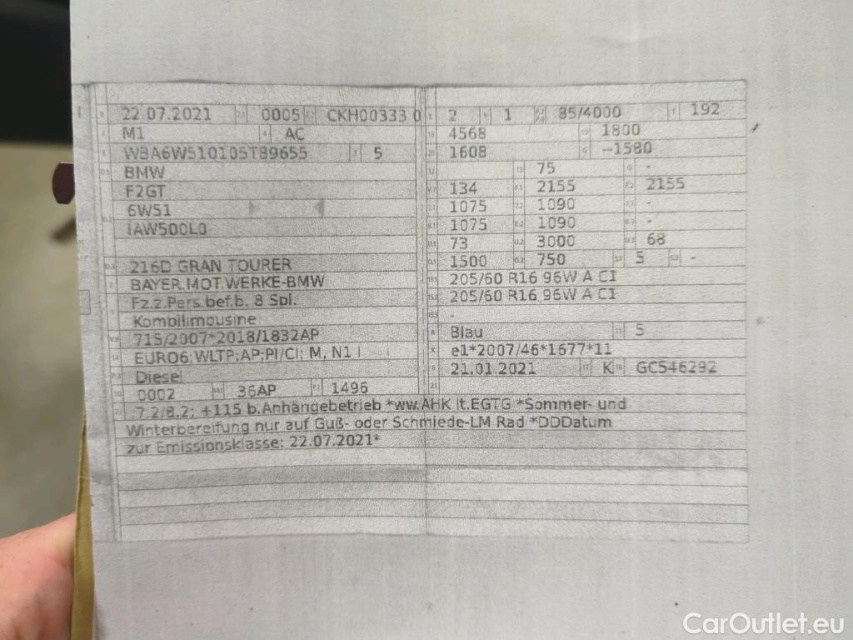 22.07.2021 0005 CKH00333 0
M1 AC
5
BMW
F2GT
6W51
IAW500L0
216D GRAN TOURER
BAYER.MOT.WERKE-BMW
Fz.z.Pers.bef.b. 8 Spl.
Kombilimousine
715/2007*2018/1832AP
EURO6;WLTP;AP;PI/CI; M, N1 I
Diesel
0002 36AP 1496
2 1 85/4000 192
4568 1800
1608 -1580
75 -
134 2155 2155
1075 1090 -
1075 1090 -
73 3000 68
1500 750 5 -
205/60 R16 96W A C1
205/60 R16 96W A C1
-
Blau 5
e1*2007/46*1677*11
21.01.2021 K GC546292
7.2/8.2: +115 b.Anhängebetrieb *ww.AHK lt.EGTG *Sommer- und
Winterbereifung nur auf Guß- oder Schmiede-LM Rad *DDDatum
zur Emissionsklasse: 22.07.2021*
CarOutlet.eu